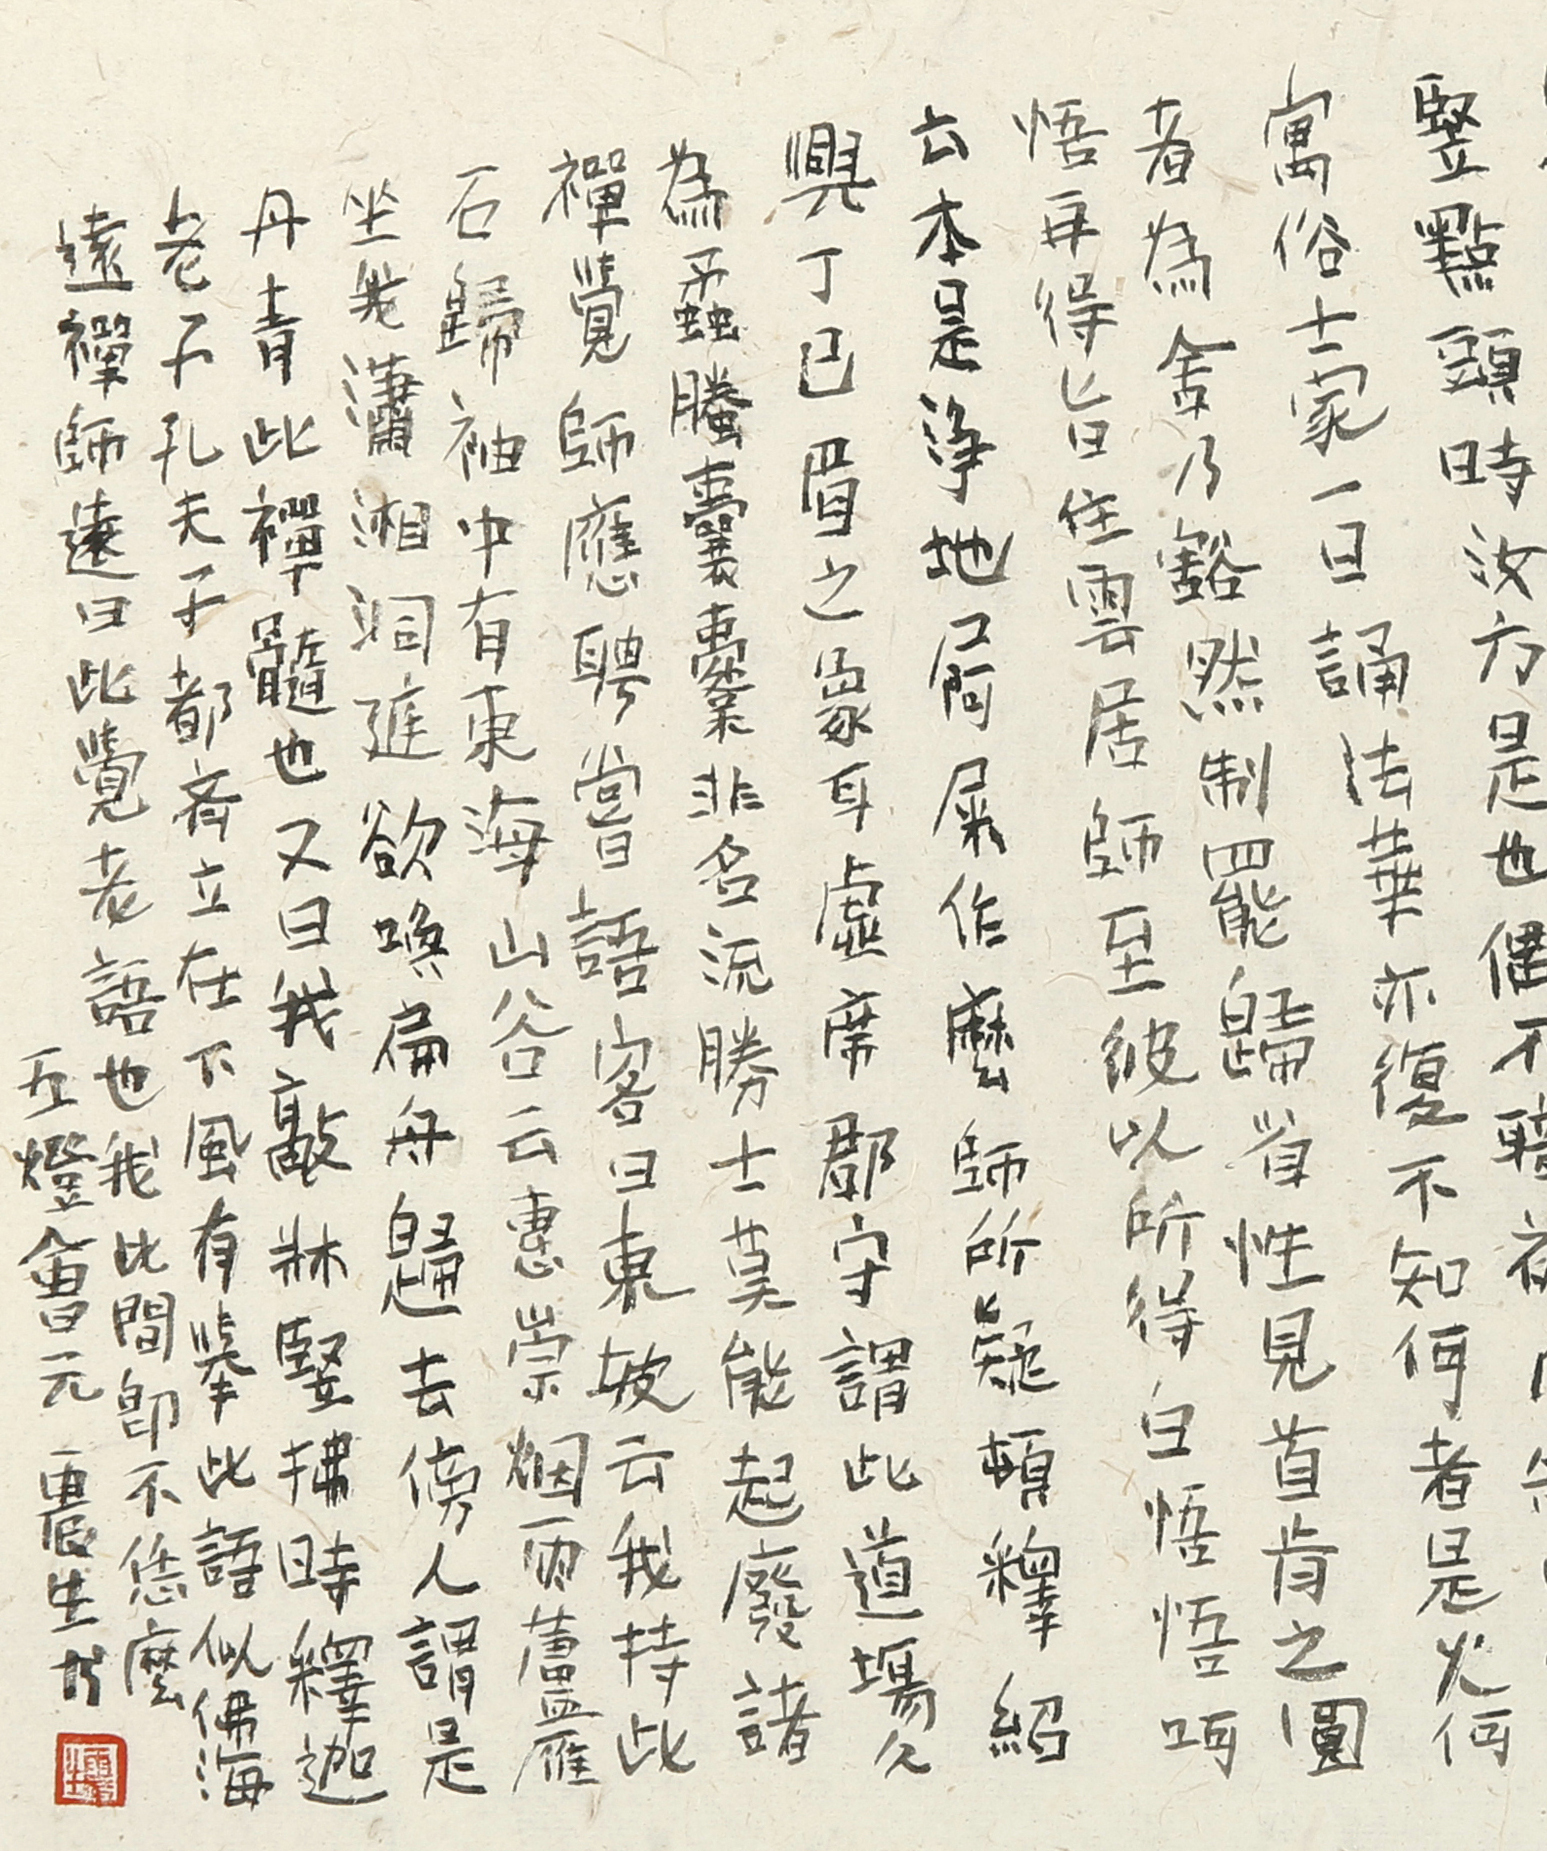 竪點頭時汝方是也偶不聽夜
寓俗士家一日誦法華亦復不知何者是火何
者為舍乃豁然制罷歸省性見首肯之圓
悟再得旨住雲居師至彼以所得白悟悟呵
云本是淨地屙屎作麼師所疑頓釋紹
興丁巳眉之象耳虛席郡守謂此道場久
為蟊螣囊橐非名流勝士莫能起廢諸
禪覺師應聘嘗語客曰東坡云我持此
石歸袖中有東海山谷云惠崇烟雨蘆雁
坐我瀟湘洞庭欲喚扁舟歸去傍人謂是
丹青此禪髓也又曰我敲牀竪拂時釋迦
老子孔夫子都齊立在下風有舉此語似佛海
遠禪師遠曰此覺老語也我此間即不恁麼
五燈會元 農生书